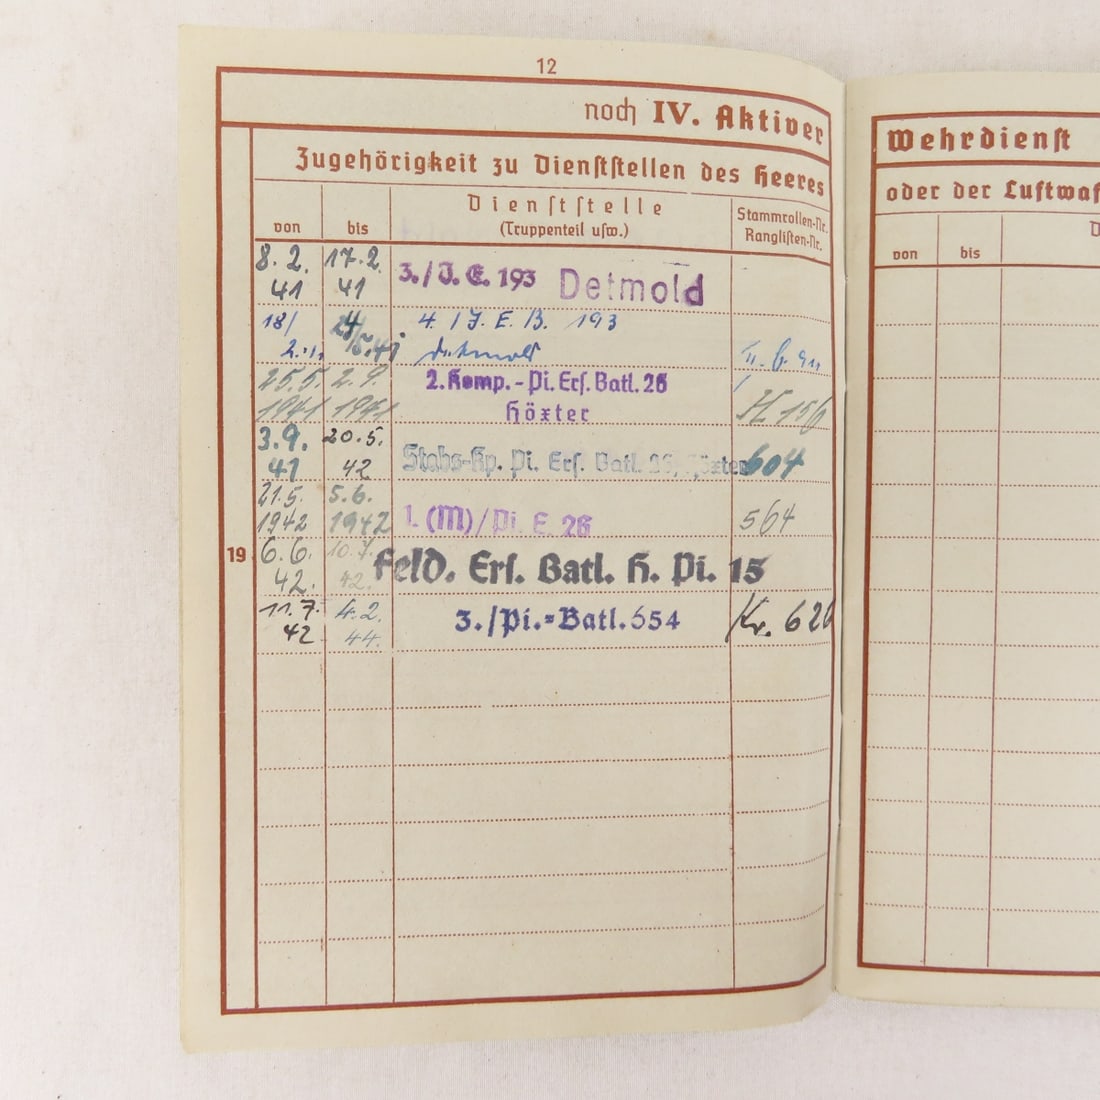 12
noch IV. Aktiver
Zugehörigkeit zu Dienststellen des Heeres
von
bis
Dienststelle
(Truppenteil usw.)
Stammrollen-Nr.
Ranglisten-Nr.
8. 2. 17. 2. 3./J. E. 193 Detmold
41 41
18/ 24/5.41 4. / J. E. B. 193
Detmold
25.5. 2. 9. 2. Komp. - Pi. Ers. Batl. 26
1941 1941 Höxter H 156
3. 9. 20. 5. Stabs-Kp. Pi. Ers. Batl. 26, Höxter 604
41 42
21.5. 5.6. 1. (M)/Pi. E. 26 564
1942 1942
19
6.6. 10.7. Feld. Ers. Batl. H. Pi. 15
42. 42.
11.7. 4.2. 3./Pi.=Batl. 654 Kr. 626
42 44.
Wehrdienst
oder der Luftwaf
von
bis
D